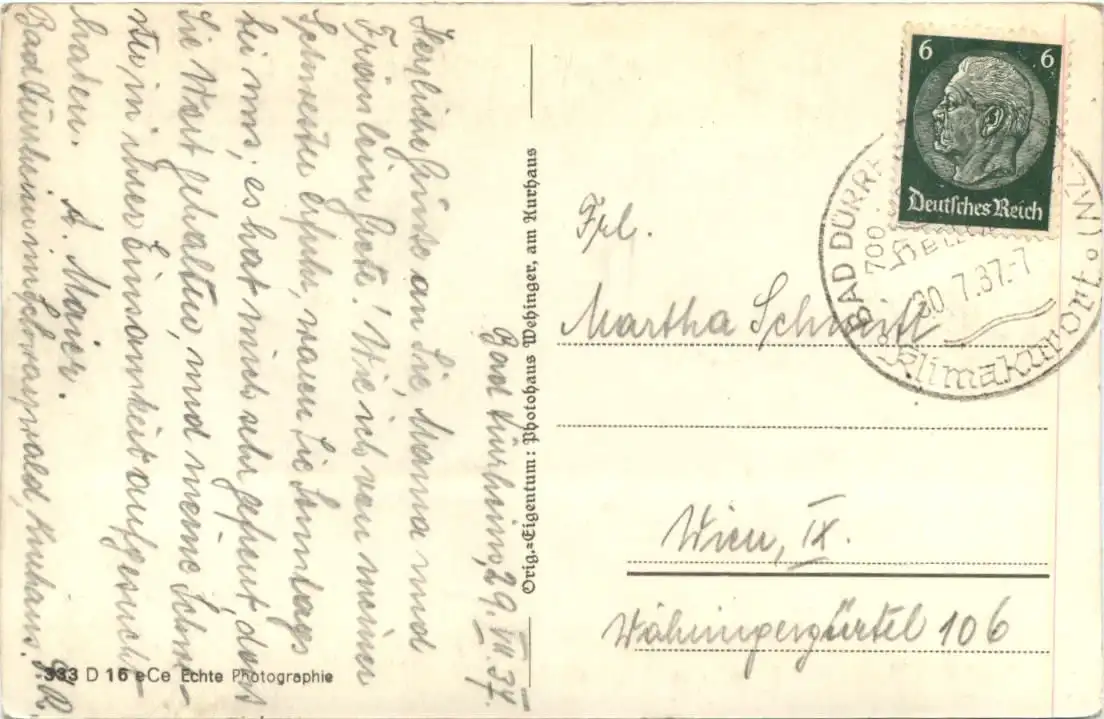 Bad Dürrheim, 29. VII. 37.
Herzliche Grüße an Sie, Mama und
Fräulein Grete! Wie ich von meiner
Schwester erfuhr, waren Sie Sonntags
bei uns; es hat mich sehr gefreut, dass
Sie Wort gehalten, und meine Schwe-
ster in ihrer Einsamkeit aufgesucht
haben.
A. Maier.
Bad Dürrheim im Schwarzwald, Kurhaus.
Orig.=Eigentum: Photohaus Wehinger, am Kurhaus
333 D 16 eCe Echte Photographie
6 6
Deutsches Reich
BAD DÜRRH
700
30.7.37.-7
Klimakurort
Frl.
Martha Schmitt
Wien, IX.
Währingergürtel 106